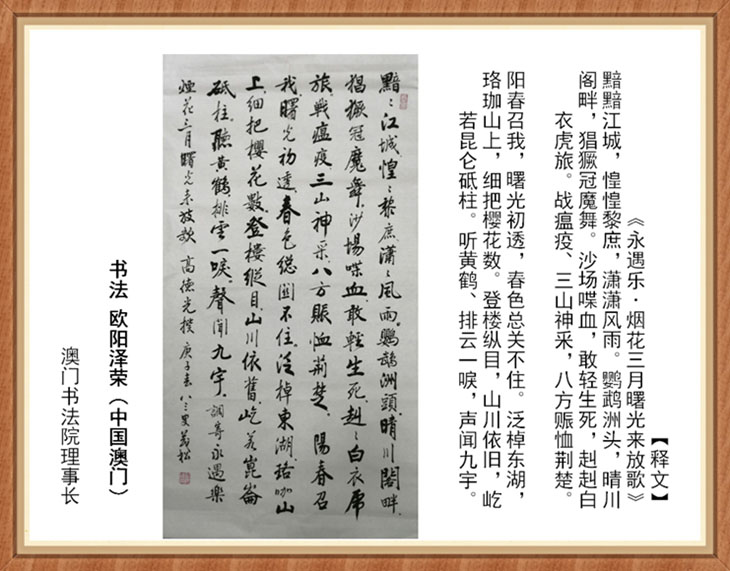 【释文】
《永遇乐·烟花三月曙光来放歌》
黯黯江城，惶惶黎庶，潇潇风雨。鹦鹉洲头，晴川
阁畔，猖獗冠魔舞。沙场喋血，敢轻生死，赳赳白
衣虎旅。战瘟疫、三山神采，八方赈恤荆楚。
阳春召我，曙光初透，春色总关不住。泛棹东湖，
珞珈山上，细把樱花数。登楼纵目，山川依旧，屹
若昆仑砥柱。听黄鹤、排云一唳，声闻九宇。
黯々江城惶々黎庶瀟々風雨鸚鵡洲頭晴川閣畔
猖獗冠魔舞沙場喋血敢輕生死赳々白衣虎
旅戰瘟疫三山神采八方賑恤荊楚陽春召
我曙光初透春色總関不住泛棹東湖珞珈山
上細把櫻花數登樓縱目山川依舊屹若崑崙
砥柱聽黃鶴排雲一唳聲聞九宇調寄永遇樂
煙花三月曙光来放歌高德光撰庚子春八三叟
书法 欧阳泽荣（中国澳门）
澳门书法院理事长